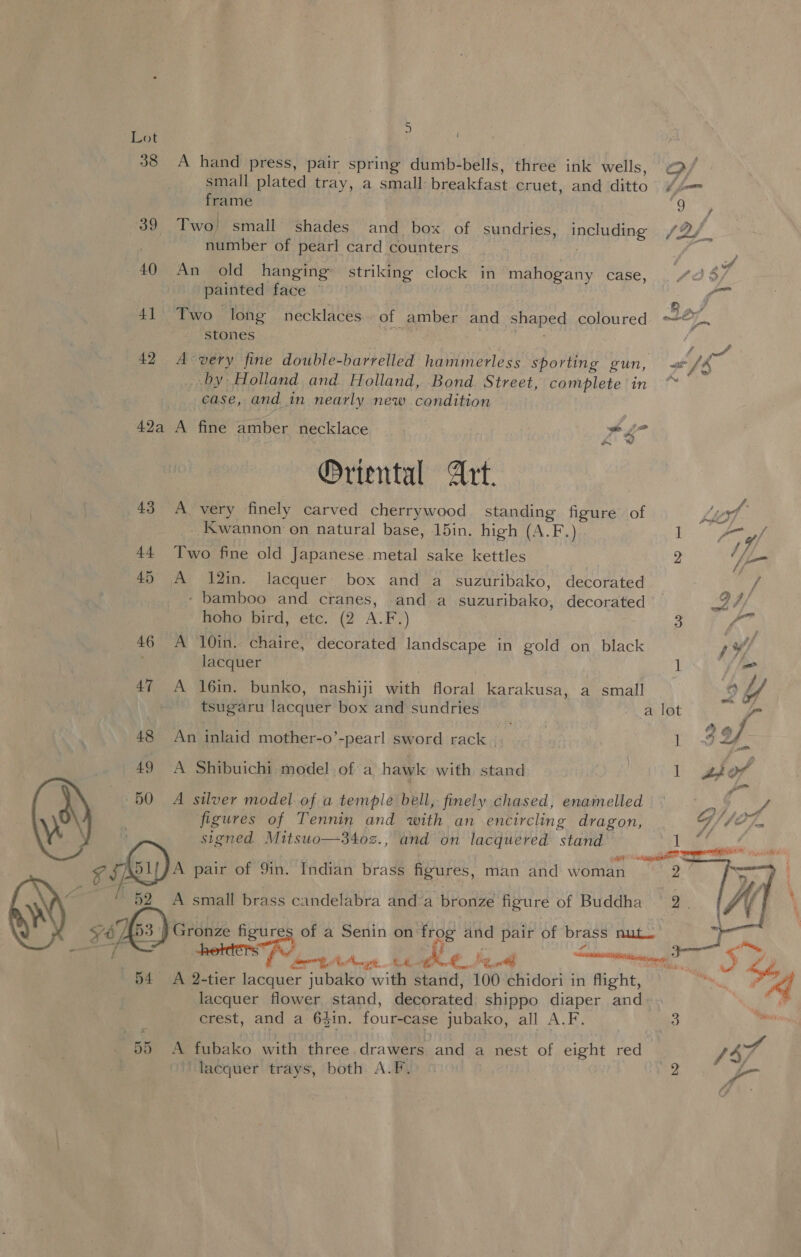 5
Lot
38 A hand press, pair spring dumb-bells, three ink wells,
small plated tray, a small breakfast cruet, and ditto
frame 9
39 Two small shades and box of sundries, including
number of pearl card counters
40 An old hanging striking clock in mahogany case,
painted face
41 Two long necklaces of amber and shaped coloured
stones
42 A very fine double-barrelled hammerless sporting gun,
by Holland and Holland, Bond Street, complete in
case, and in nearly new condition
42a A fine amber necklace
Oriental Art.
43 A very finely carved cherrywood standing figure of
Kwannon on natural base, 15in. high (A.F.) 1
44 Two fine old Japanese metal sake kettles 2
45 A 12in. lacquer box and a suzuribako, decorated
bamboo and cranes, and a suzuribako, decorated
hoho bird, etc. (2 A.F.) 3
46 A 10in. chaire, decorated landscape in gold on black
lacquer 1
47 A 16in. bunko, nashiji with floral karakusa, a small
tsugaru lacquer box and sundries a lot
48 An inlaid mother-o'-pearl sword rack 1
49 A Shibuichi model of a hawk with stand 1
50 A silver model of a temple bell, finely chased, enamelled
figures of Tennin and with an encircling dragon,
signed Mitsuo—34oz., and on lacquered stand 1
51 A pair of 9in. Indian brass figures, man and woman 2
52 A small brass candelabra and a bronze figure of Buddha 2
53 Gronze figures of a Senin on frog and pair of brass nut
holders 3
54 A 2-tier lacquer jubako with stand, 100 chidori in flight,
lacquer flower stand, decorated shippo diaper and
crest, and a 6½in. four-case jubako, all A.F. 3
55 A fubako with three drawers and a nest of eight red
lacquer trays, both A.F. 2